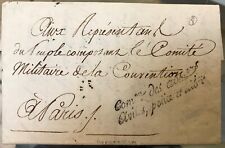 Aux Représentans
du Peuple composant le Comité
Militaire de la Convention
A Paris
Comm. des
civiles, police et